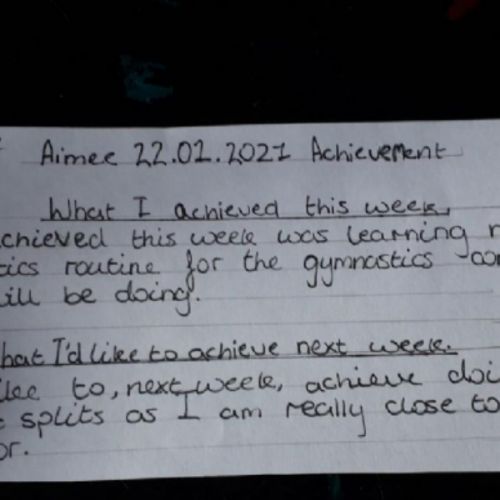 Aimee 22.02.2021 Achievement
What I achieved this week.
chieved this week was learning
tics routine for the gymnastics
ill be doing.
hat I'd like to achieve next week.
to, next week, achieve doi
splits as I am really close to
or.